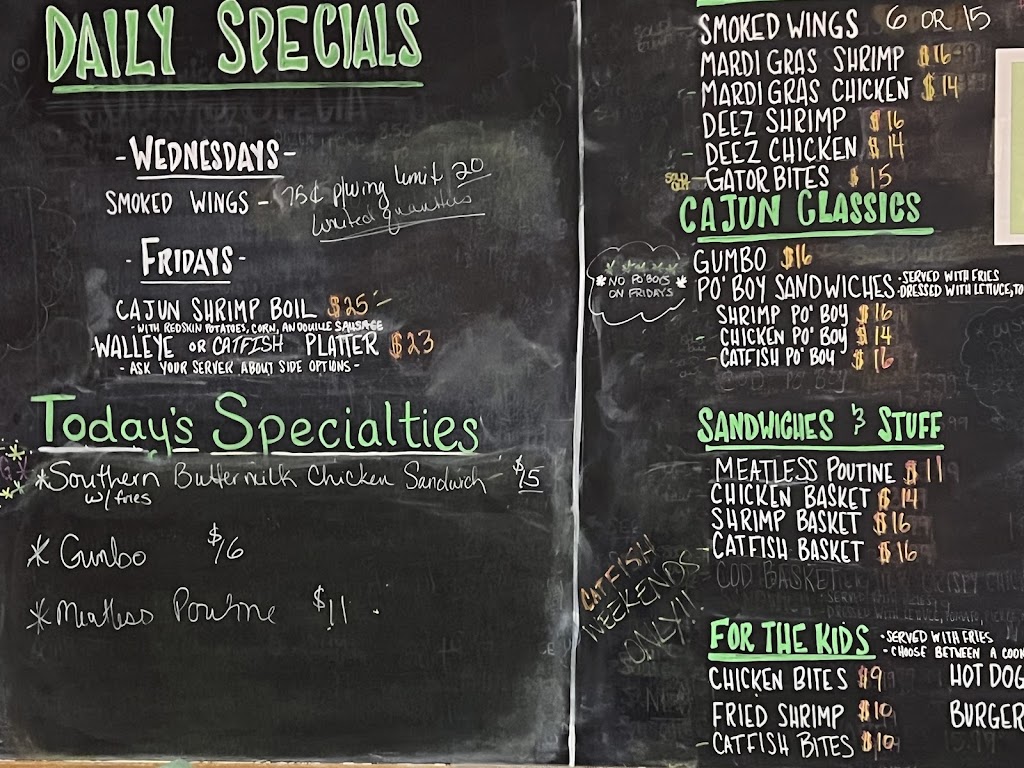 DAILY SPECIALS
-WEDNESDAYS-
SMOKED WINGS - 75¢ p/wing limit 20
limited quantities
-FRIDAYS-
CAJUN SHRIMP BOIL $25-
-WITH REDSKIN POTATOES, CORN, ANDOUILLE SAUSAGE
-WALLEYE OR CATFISH PLATTER $23
-ASK YOUR SERVER ABOUT SIDE OPTIONS-
Today's Specialties
*Southern Buttermilk Chicken Sandwich - $15
w/fries
*Gumbo $16
*Meatless Poutine $11
SMOKED WINGS 6 OR 15
MARDI GRAS SHRIMP $16
MARDI GRAS CHICKEN $14
DEEZ SHRIMP $16
-DEEZ CHICKEN $14
SOLD OUT -GATOR BITES $15
CAJUN CLASSICS
GUMBO $16
PO' BOY SANDWICHES -SERVED WITH FRIES
-DRESSED WITH LETTUCE, TO
*NO PO'BOYS*
ON FRIDAYS
SHRIMP PO' BOY $16
- CHICKEN PO' BOY $14
- CATFISH PO' BOY $16
SANDWICHES & STUFF
MEATLESS POUTINE $11
CHICKEN BASKET $14
SHRIMP BASKET $16
-CATFISH BASKET $16
COD BASKET
CATFISH
WEEKENDS
ONLY!!
FOR THE KIDS -SERVED WITH FRIES
-CHOOSE BETWEEN A COOK
CHICKEN BITES $9 HOT DOG
FRIED SHRIMP $10 BURGER
-CATFISH BITES $10